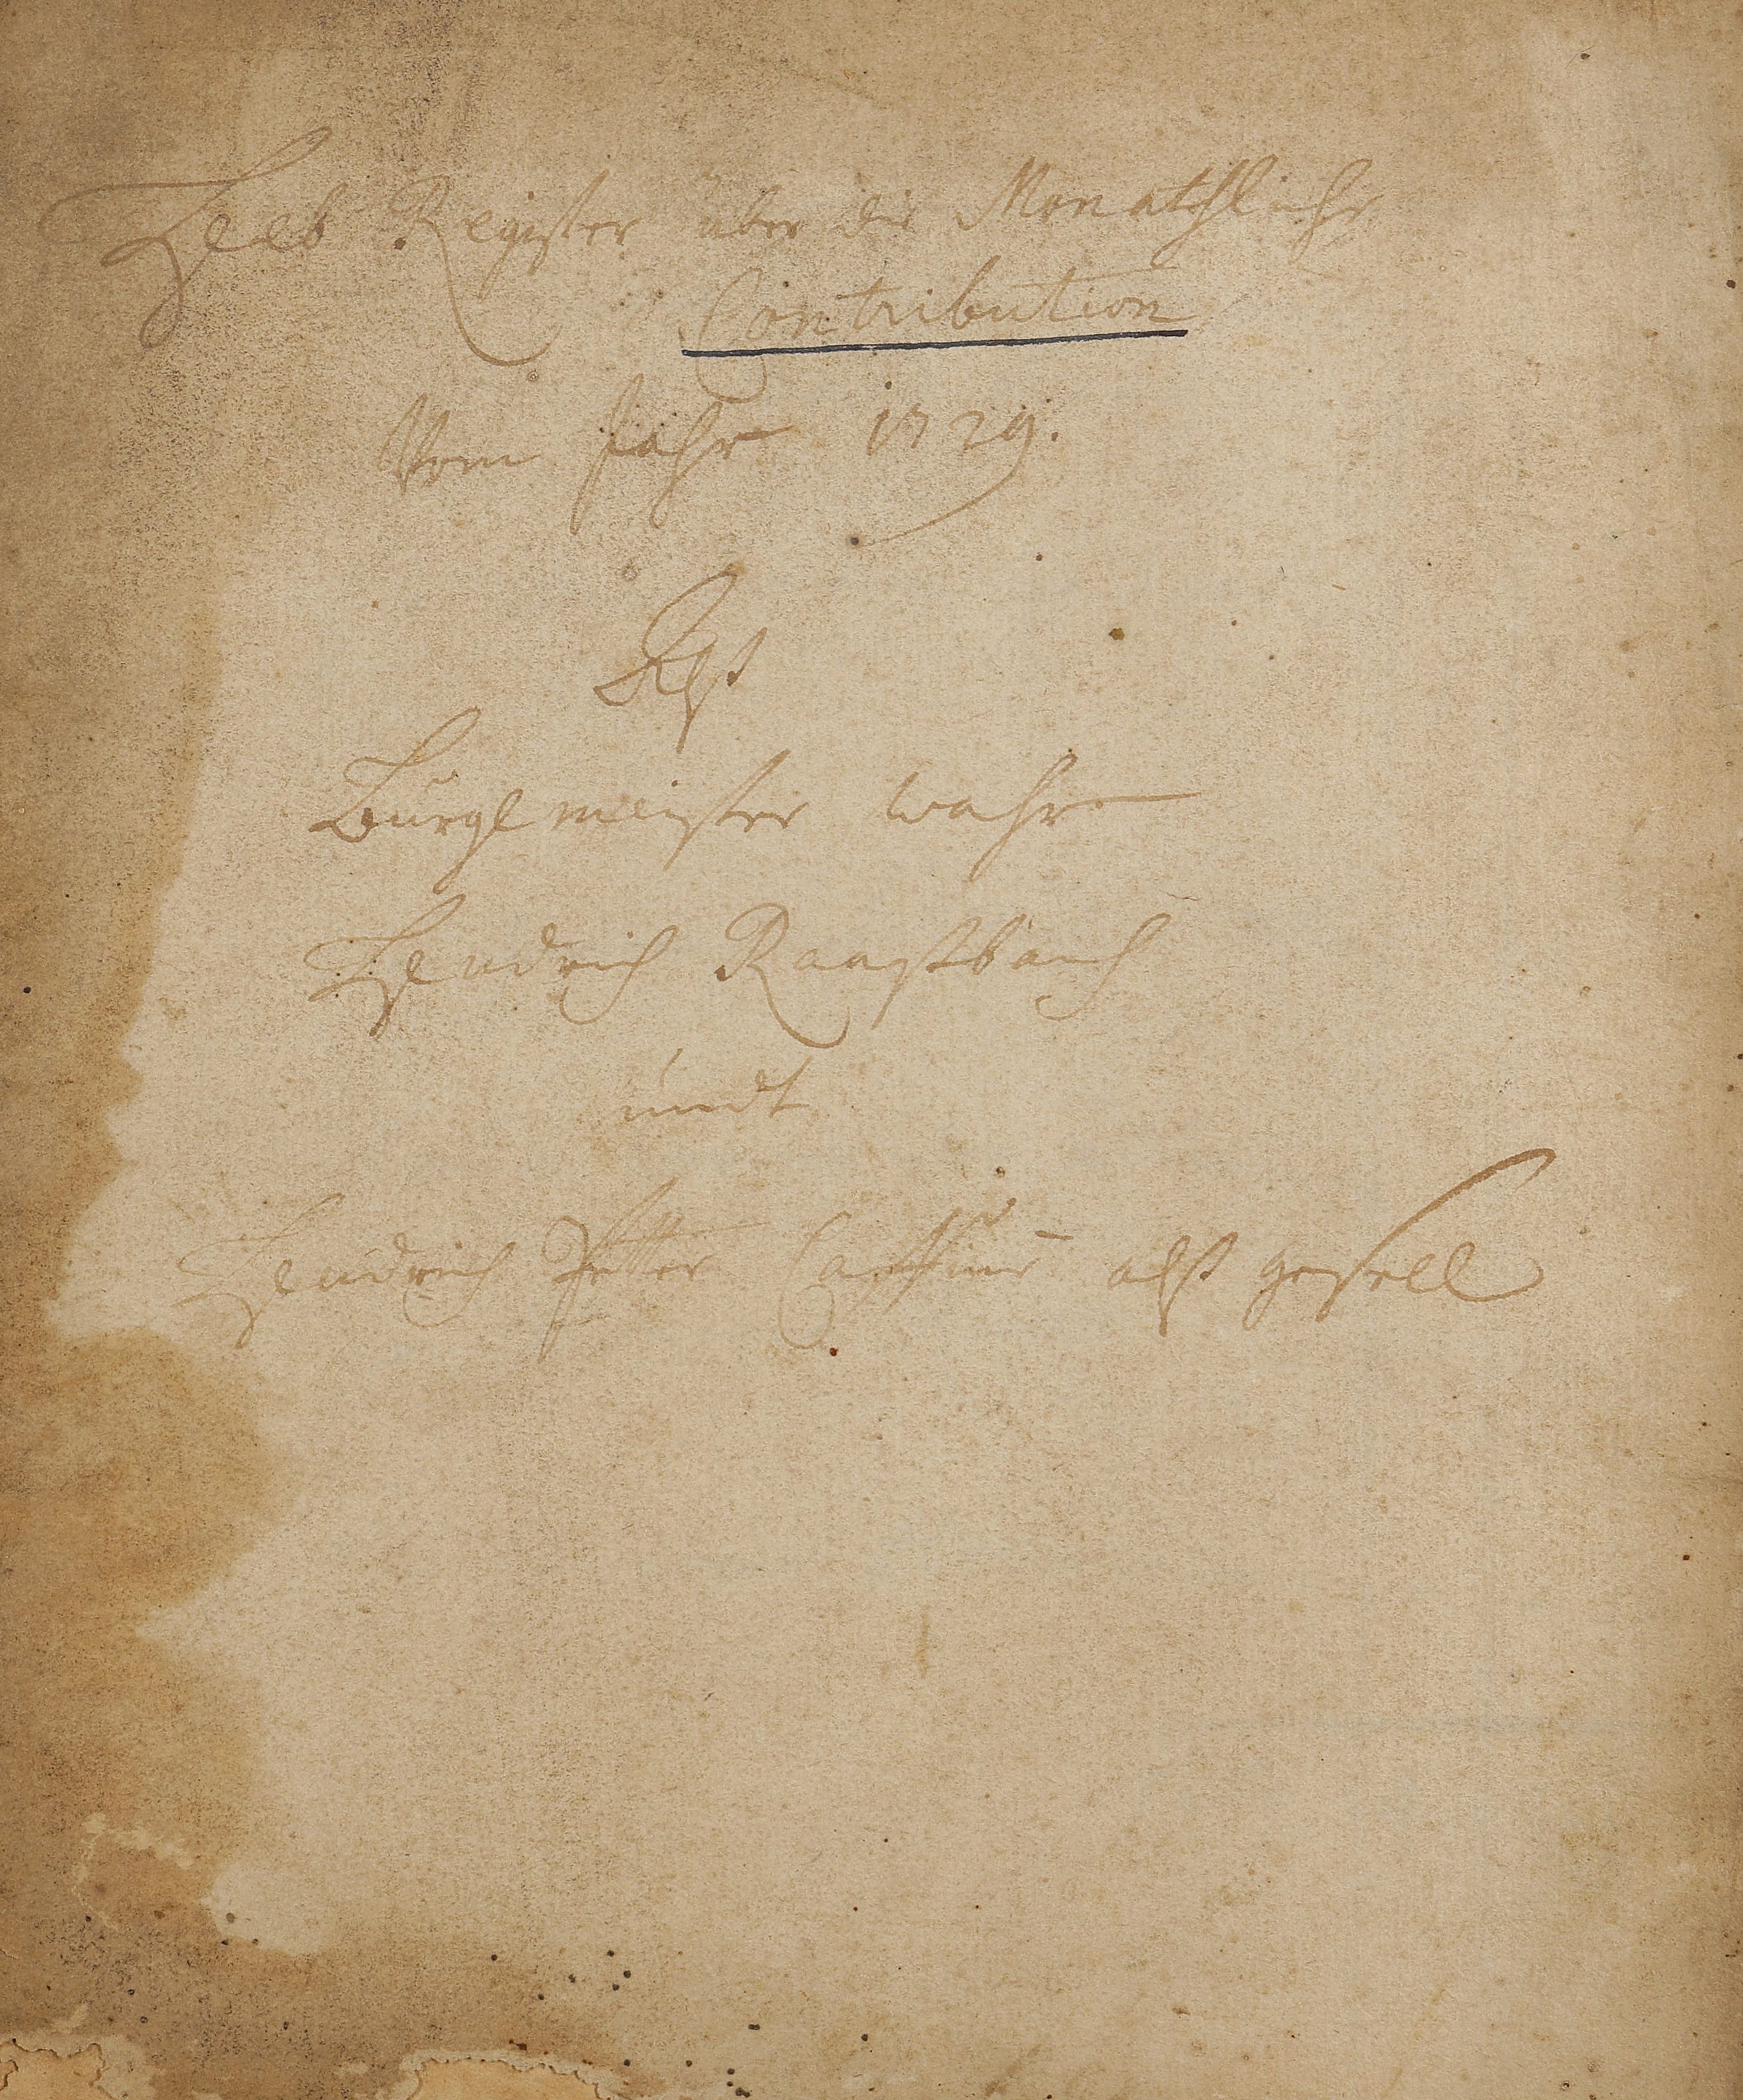 Heeb Register über die Monathliche
Contribution
Vom Jahr 1729.
Alß
Burgemeister wahr
Hendrich
undt
Hendrich Petter alß gesell